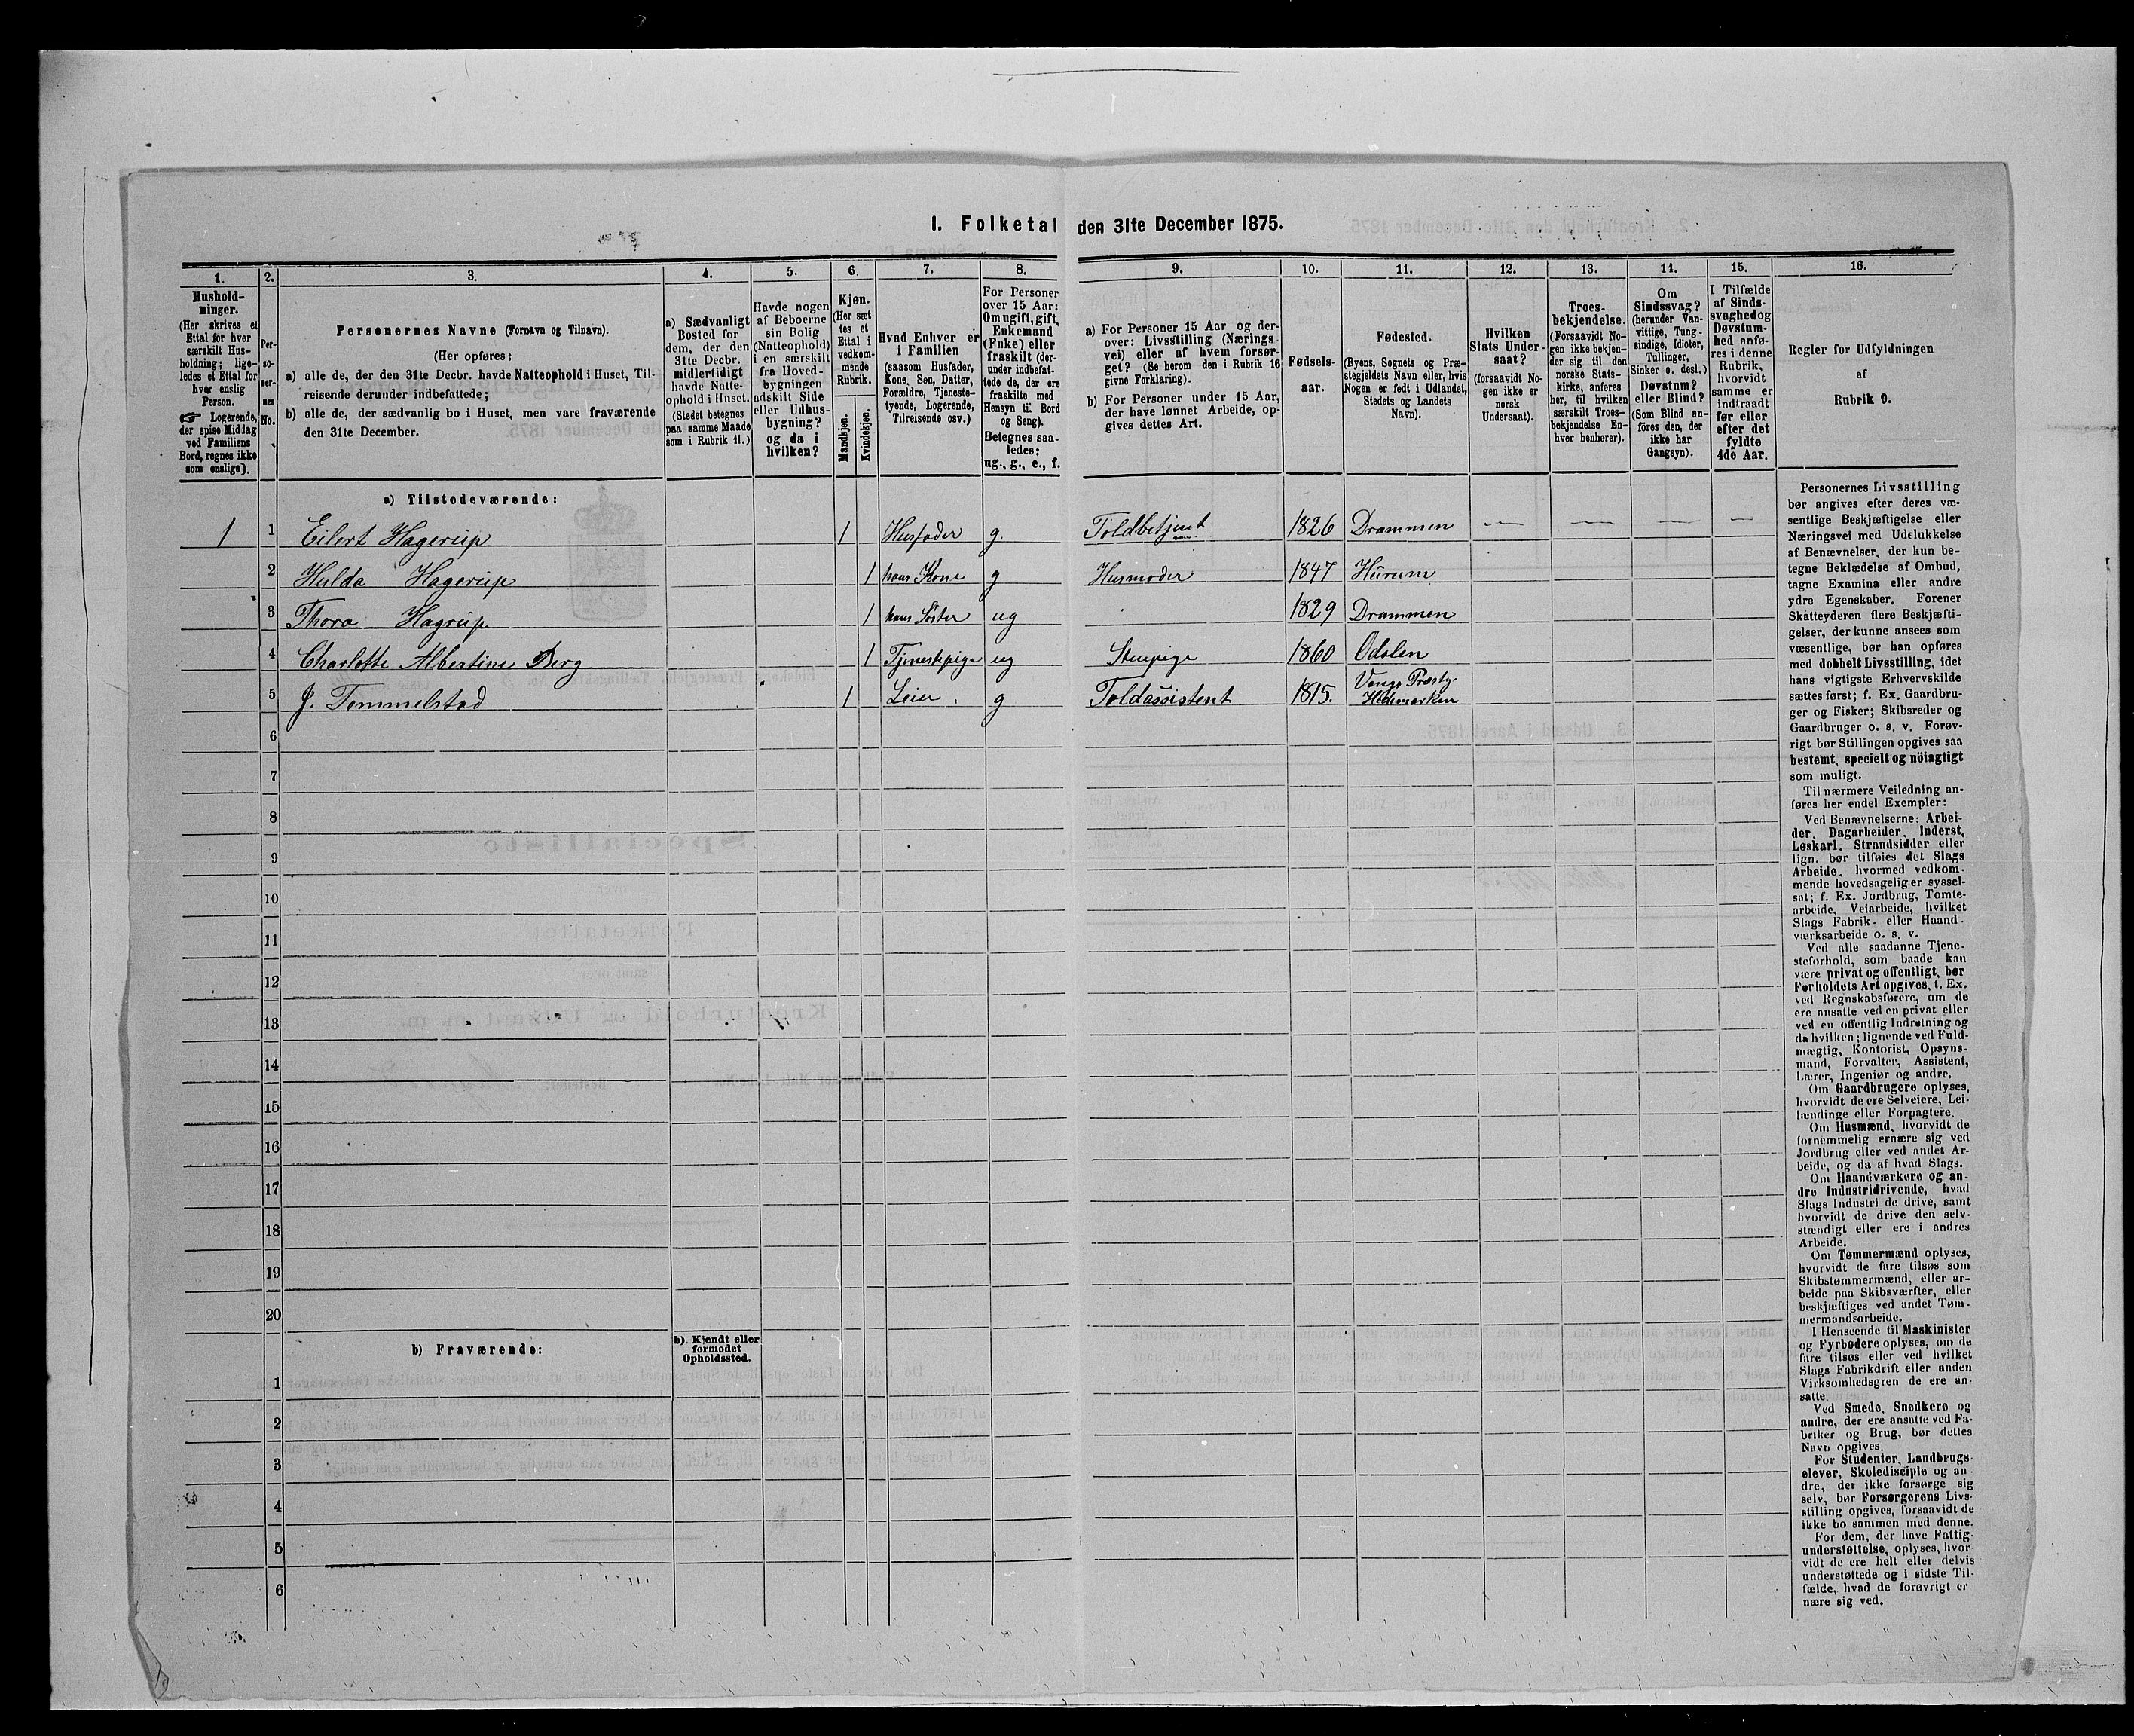 1. Folketal den 31te December 1875.
1.
2.
3.
4.
5.
6.
7.
8.
9.
10.
11.
12.
13.
14.
15.
16.
Hushold-
ninger.
(Her skrives et
Ettal for hver
særskilt Hus-
holdning; lige-
ledes et Ettal for
hver enslig
Person.
☛ Logerende,
der spise Middag
ved Familiens
Bord, regnes ikke
som enslige).
Per-
so-
ner-
nes
No.
Personernes Navne (Fornavn og Tilnavn).
(Her opføres:
a) alle de, der den 31te Decbr. havde Natteophold i Huset, Til-
reisende derunder indbefattede;
b) alle de, der sædvanlig bo i Huset, men vare fraværende
den 31te December.
a) Sædvanligt
Bosted for
dem, der den
31te Decbr.
midlertidigt
havde Natte-
ophold i Huset.
(Stedet betegnes
paa samme Maade
som i Rubrik 11.)
Havde nogen
af Beboerne
sin Bolig
(Natteophold)
i en særskilt
fra Hoved-
bygningen
adskilt Side
eller Udhus-
bygning?
og da i
hvilken?
Kjøn.
(Her sæt
tes et
Ettal i
vedkom-
mende
Rubrik.
Mandkjøn.
Kvindekjøn.
Hvad Enhver er
i Familien
(saasom Husfader,
Kone, Søn, Datter,
Forældre, Tjeneste-
tyende, Logerende,
Tilreisende osv.)
For Personer
over 15 Aar:
Om ugift, gift,
Enkemand
(Enke) eller
fraskilt (der-
under indbefat-
tede de, der ere
fraskilte med
Hensyn til Bord
og Seng).
Betegnes saa-
ledes:
ug., g., e., f.
a) For Personer 15 Aar og der-
over: Livsstilling (Nærings
vei) eller af hvem forsør-
get? (Se herom den i Rubrik 16
givne Forklaring).
b) For Personer under 15 Aar,
der have lønnet Arbeide, op-
gives dettes Art.
Fødsels-
aar.
Fødested.
(Byens, Sognets og Præ-
stegjeldets Navn eller, hvis
Nogen er født i Udlandet,
Stedets og Landets
Navn).
Hvilken
Stats Under-
saat?
(forsaavidt No-
gen ikke er
norsk
Undersaat).
Troes-
bekjendelse.
(Forsaavidt No-
gen ikke bekjen-
der sig til den
norske Stats-
kirke, anføres
her, til hvilken
særskilt Troes-
bekjendelse En-
hver henhører).
Om
Sindssvag?
(herunder Van-
vittige, Tung-
sindige, Idioter,
Tullinger,
Sinker o. desl.)
Døvstum?
eller Blind?
(Som Blind an-
føres den, der
ikke har
Gangsyn).
I Tilfælde
af Sinds-
svaghed og
Døvstum-
hed anfø-
res i denne
Rubrik,
hvorvidt
samme er
indtraadt
før eller
efter det
fyldte
4de Aar.
Regler for Udfyldningen
af
Rubrik 9.
a) Tilstedeværende:
1 1 Eilert Hagerup 1 Husfader g. Toldbetjent 1826 Drammen
2 Hulda Hagerup 1 hans Kone g Husmoder 1847 Hurum
3 Thora Hagrup 1 hans Søster ug 1829 Drammen
4 Charlotte Albertine Berg 1 Tjenestepige ug Stuepige 1860 Odalen
5 J. Tommelstad 1 Leier. g Toldassistent 1815. Vangs Præstg. Hedemarken
6
7
8
9
10
11
12
13
14
15
16
17
18
19
20
b) Fraværende:
b). Kjendt eller
formodet
Opholdssted.
1
2
3
4
5
6
Personernes Livsstilling
bør angives efter deres væ-
sentlige Beskjæftigelse eller
Næringsvei med Udelukkelse
af Benævnelser, der kun be-
tegne Beklædelse af Ombud,
tagne Examina eller andre
ydre Egenskaber. Forener
Skatteyderen flere Beskjæfti-
gelser, der kunne ansees som
væsentlige, bør han opføres
med dobbelt Livsstilling, idet
hans vigtigste Erhvervskilde
sættes først; f. Ex. Gaardbru-
ger og Fisker; Skibsreder og
Gaardbruger o. s. v. Forøv-
rigt bør Stillingen opgives saa
bestemt, specielt og nöiagtigt
som muligt.
Til nærmere Veiledning an-
føres her endel Exempler:
Ved Benævnelserne: Arbei-
der, Dagarbeider, Inderst,
Løskarl, Strandsidder eller
lign. bør tilføies det Slags
Arbeide, hvormed vedkom-
mende hovedsagelig er syssel-
sat; f. Ex. Jordbrug, Tomte-
arbeide, Veiarbeide, hvilket
Slags Fabrik- eller Haand-
værksarbeide o. s. v.
Ved alle saadanne Tjene-
steforhold, som baade kan
være privat og offentligt, bør
Forholdets Art opgives, t. Ex.
ved Regnskabsførere, om de
ere ansatte ved en privat eller
ved en offentlig Indretning og
da hvilken; lignende ved Fuld-
mægtig, Kontorist, Opsyns-
mand, Forvalter, Assistent,
Lærer, Ingeniør og andre.
Om Gaardbrugere oplyses,
hvorvidt de ere Selveiere, Lei-
lændinge eller Forpagtere.
Om Husmænd, hvorvidt de
fornemmelig ernære sig ved
Jordbrug eller ved andet Ar-
beide, og da af hvad Slags.
Om Haandværkere og an-
dre Industridrivende, hvad
Slags Industri de drive, samt
hvorvidt de drive den selv-
stændigt eller ere i andres
Arbeide.
Om Tømmermænd oplyses,
hvorvidt de fare tilsøs som
Skibstømmermænd, eller ar-
beide paa Skibsværfter, eller
beskjæftiges ved andet Tøm-
mermandsarbeide.
I Henseende til Maskinister
og Fyrbødere oplyses, om de
fare tilsøs eller ved hvilket
Slags Fabrikdrift eller anden
Virksomhedsgren de ere an-
satte.
Ved Smede, Snedkere og
andre, der ere ansatte ved Fa-
briker og Brug, bør dettes
Navn opgives.
For Studenter, Landbrugs-
elever, Skoledisciple og an-
dre, der ikke forsørge sig
selv, bør Forsørgerens Livs-
stilling opgives, forsaavidt de
ikke bo sammen med denne.
For dem, der have Fattig-
understøttelse, oplyses, hvor-
vidt de ere helt eller delvis
understøttede og i sidste Til-
fælde, hvad de forøvrigt er
nære sig ved.